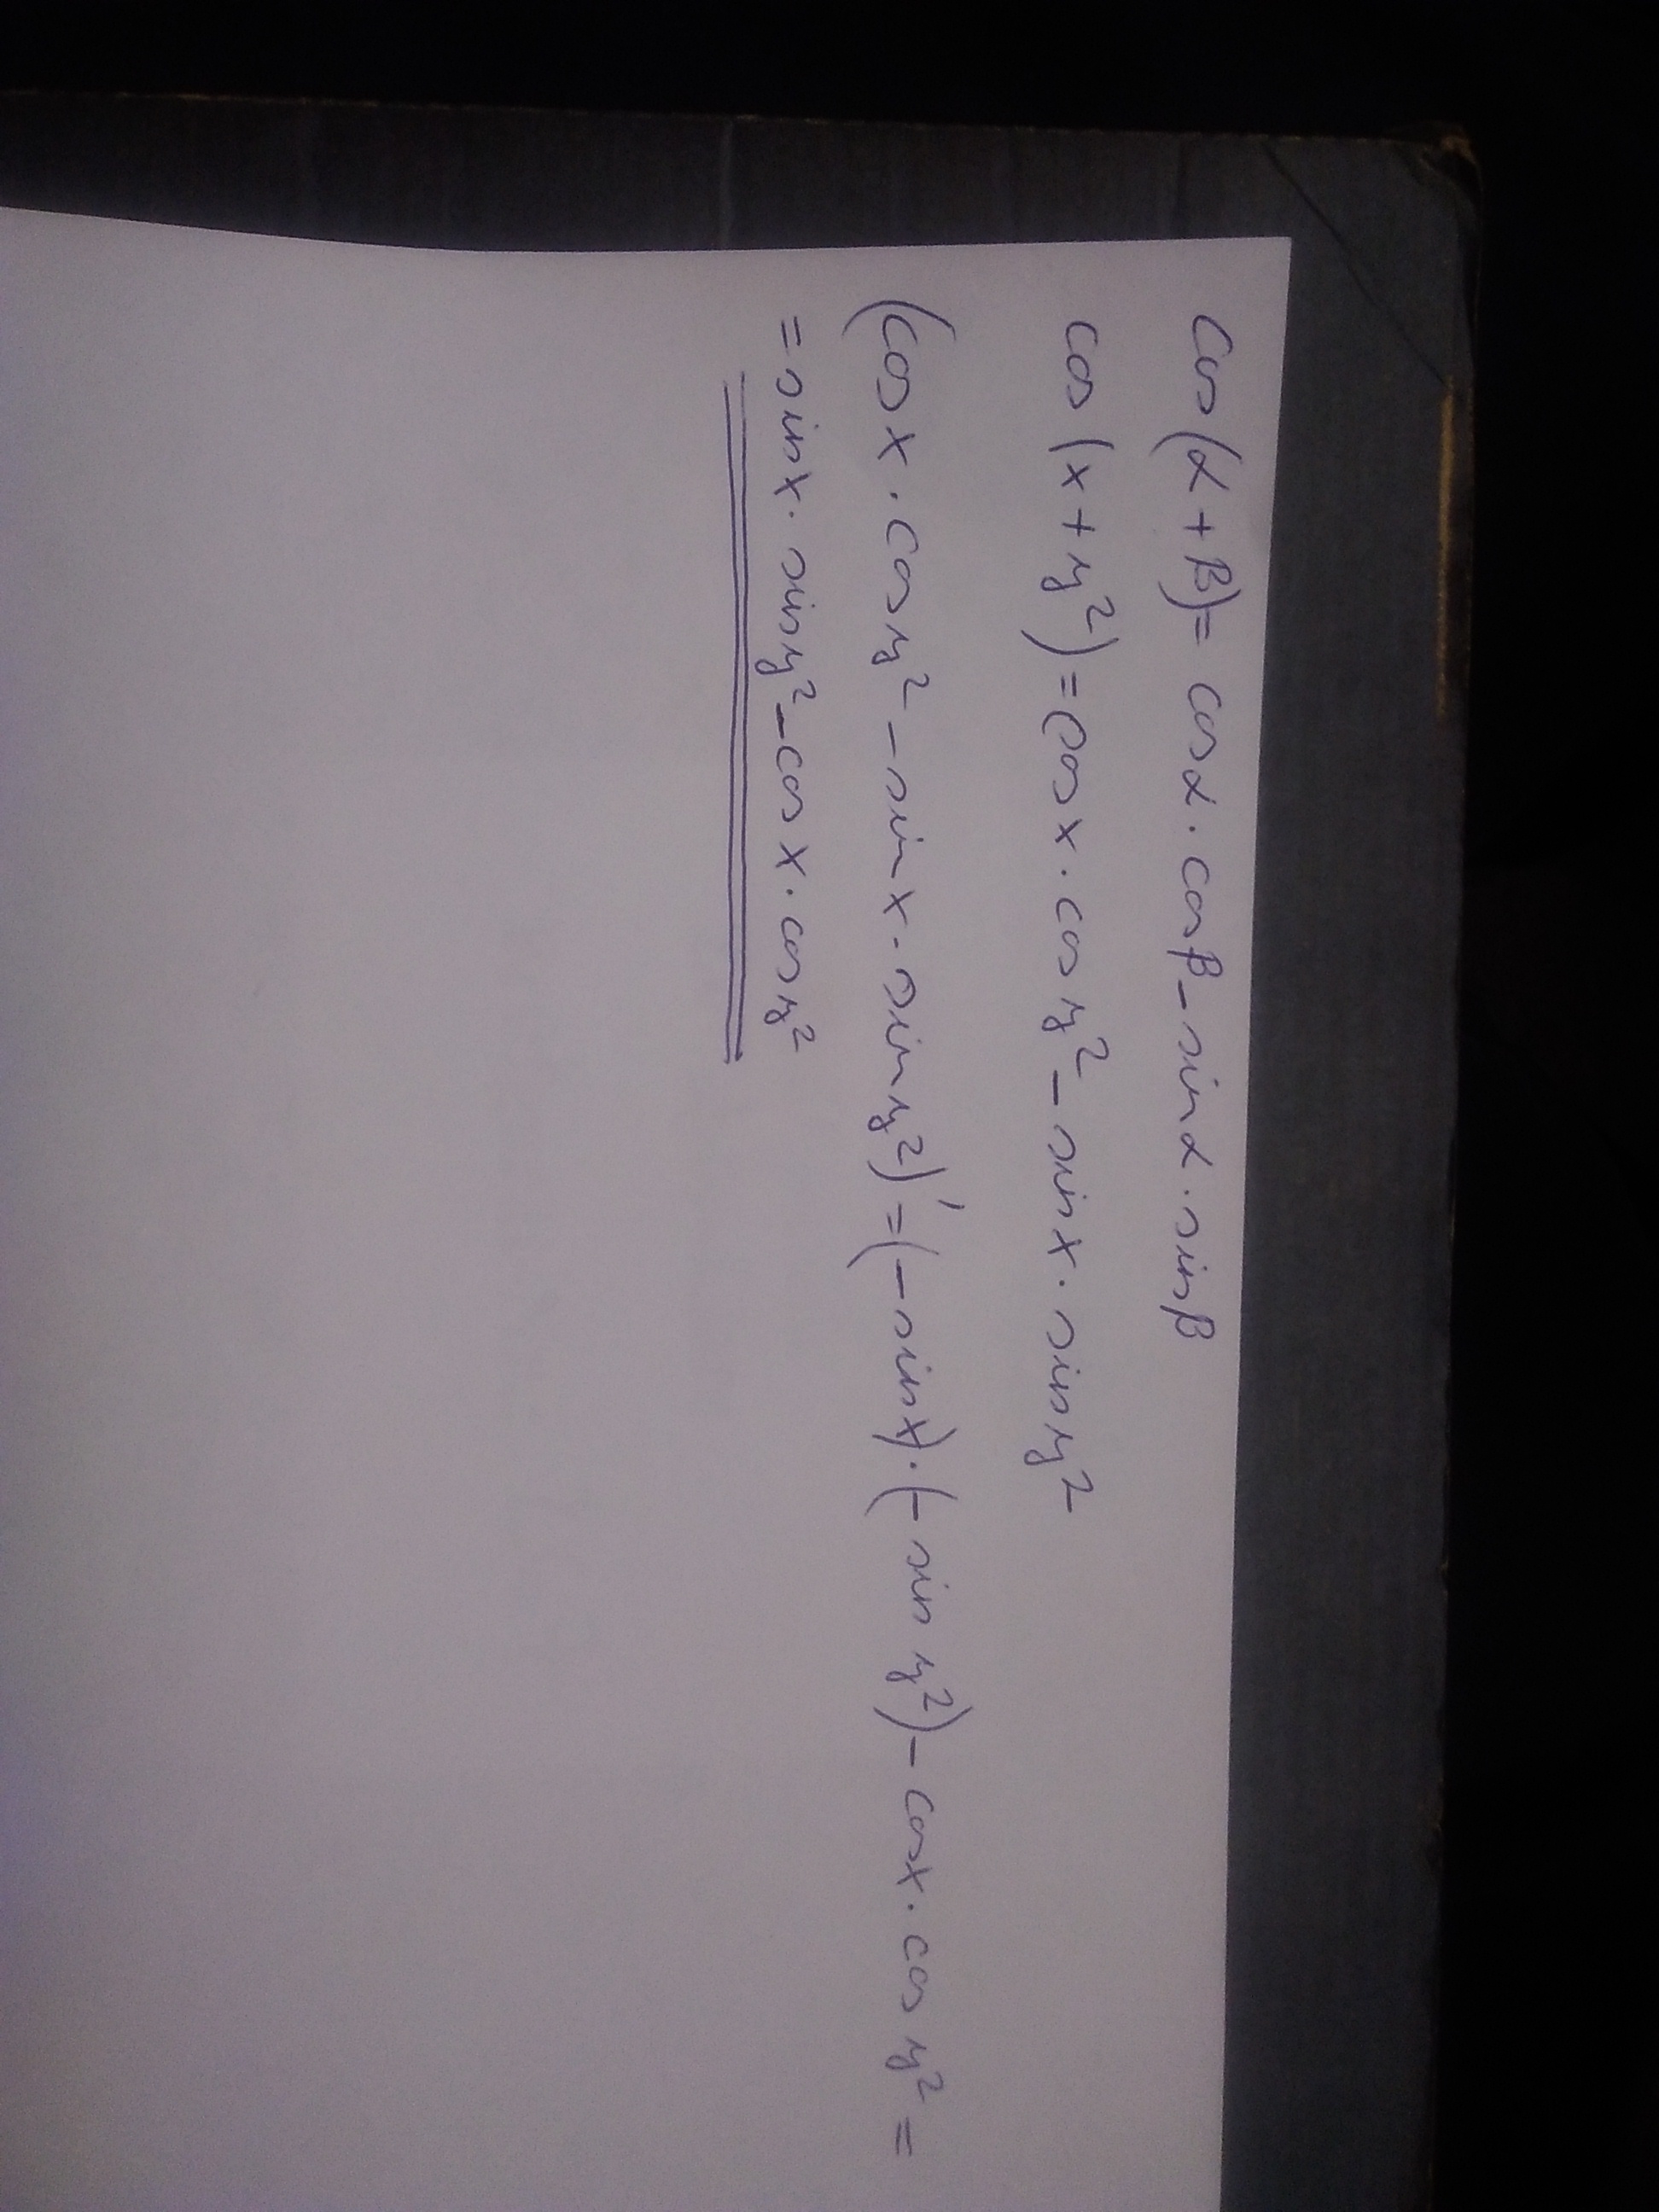 cos(α+β)=cosα·cosβ-sinα·sinβ
cos(x+y²)=cosx·cosy²-sinx·siny²
(cosx·cosy²-sinx·siny²)'=(-sinx)·(-siny²)-cosx·cosy²=
=sinx·siny²-cosx·cosy²